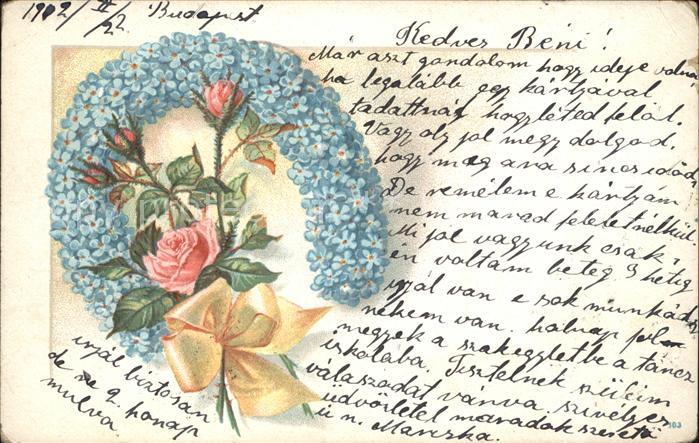 1902/II/22. Budapest
Kedves Béni!
Már aszt gondolom hogy ideje volna
ha legalább egy kártyával
tudattnád hogyléted felöl.
Vagy oly jol megy dolgod,
hogy még ara sincs időd,
De remélem e kártyám
nem marad felelet nélkül
Mi jol vagyunk csak
én voltam beteg 3 hétig
van e sok munkád
nekem van. holnap
megyek a szakegyletbe a táncz
iskolába. Tisztelnek szüleim
válaszodat várva, szivélyes
üdvözlettel maradok szerető
u. n. Mariska.
irjál biztosan
de ne 2 honap
mulva
103